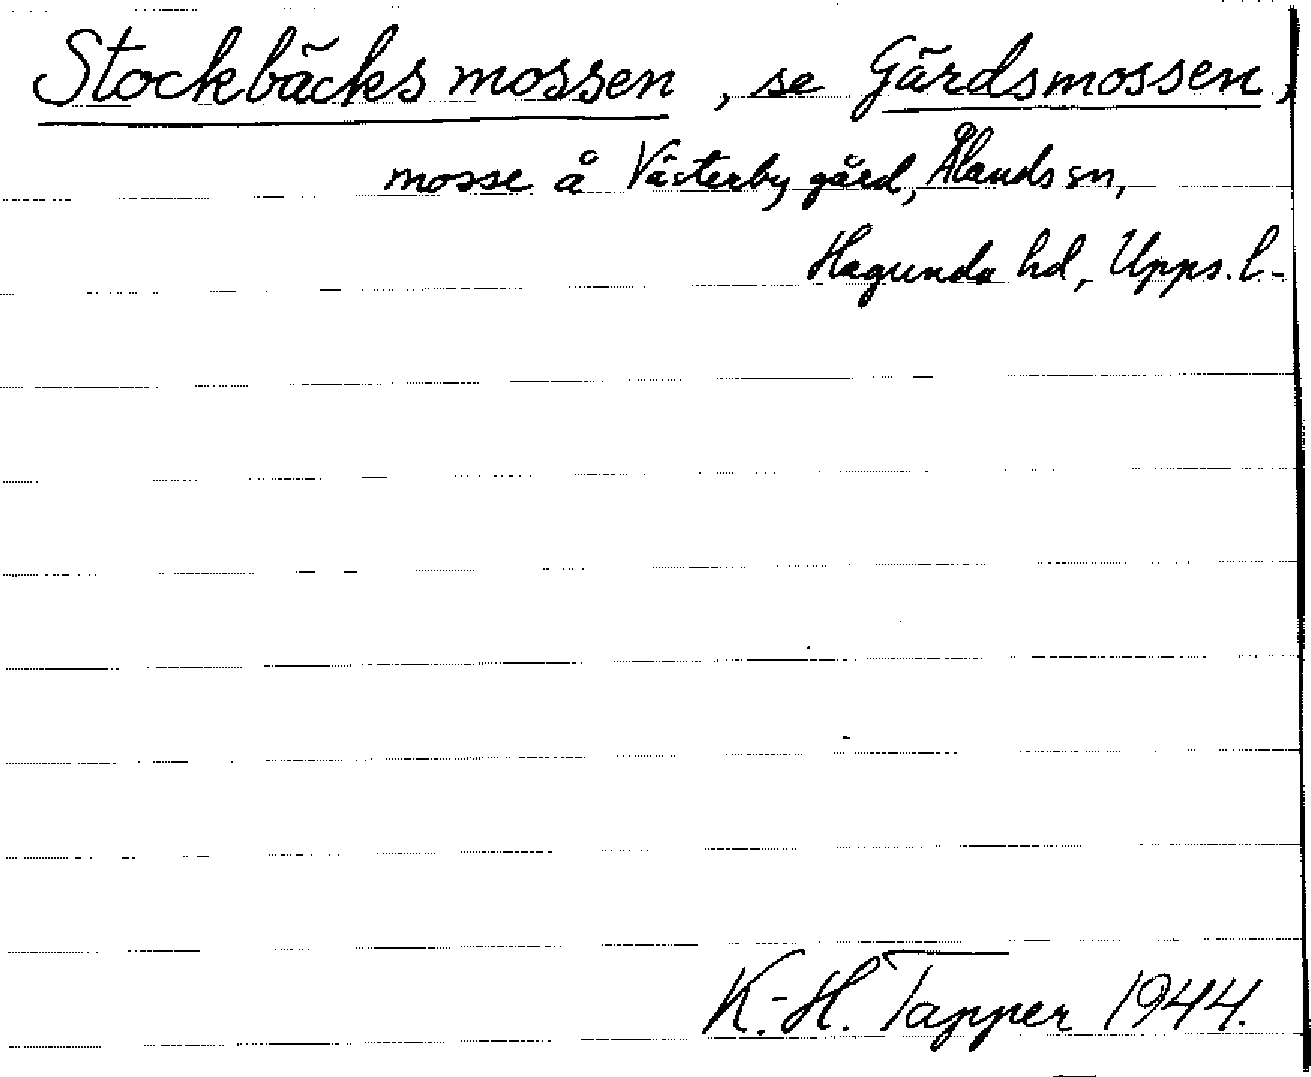 Stockbäcksmossen, se Gärdsmossen,
mosse å Västerby gård, Ålands sn,
Hagunda hd, Upps. l.
K.-H. Tapper 1944.